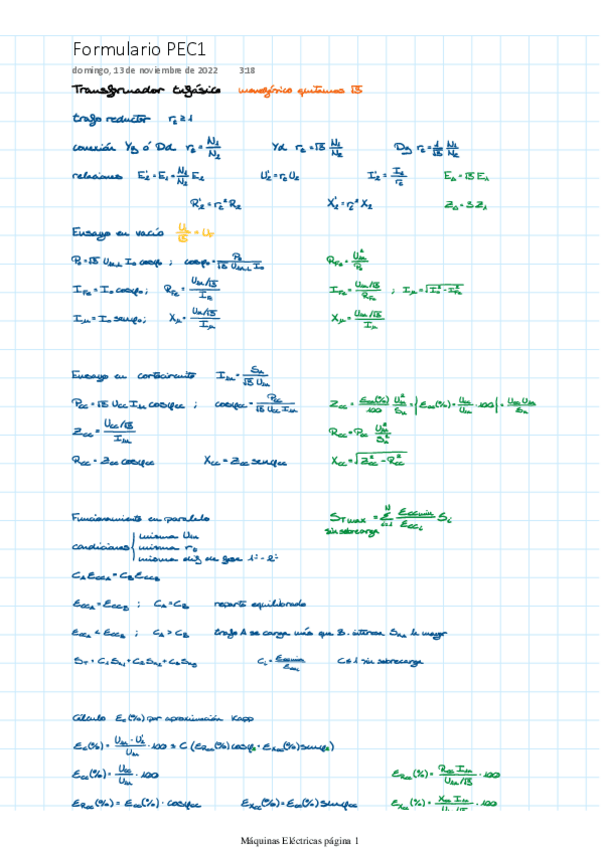 Formulario PEC1
domingo, 13 de noviembre de 2022 3:18
Transformador trifásico monofásico quitamos √3
trafo reductor rₜ ≥ 1
conexión Yy ó Dd rₜ = N₁/N₂ Yd rₜ = √3 N₁/N₂ Dy rₜ = 1/√3 N₁/N₂
relaciones E₂' = E₁ = N₁/N₂ E₂ U₂' = rₜ U₂ I₂' = I₂/rₜ
R₂' = rₜ² R₂ X₂' = rₜ² X₂
Ensayo en vacío
P₀ = √3 U₁ₙ,L I₀ cosφ₀ ; cosφ₀ = P₀/(√3 U₁ₙ,L I₀) R_Fe = U₁ₙ²/P₀
I_Fe = I₀ cosφ₀ ; R_Fe = (U₁ₙ/√3)/I_Fe I_Fe = (U₁ₙ/√3)/R_Fe ; I_μ = √(I₀² - I_Fe²)
I_μ = I₀ senφ₀ ; X_μ = (U₁ₙ/√3)/I_μ X_μ = (U₁ₙ/√3)/I_μ
Ensayo en cortocircuito I₁ₙ = Sₙ/(√3 U₁ₙ)
P_cc = √3 U_cc I₁ₙ cosφ_cc ; cosφ_cc = P_cc/(√3 U_cc I₁ₙ)
Z_cc = (U_cc/√3)/I₁ₙ R_cc = P_cc U₁ₙ²/Sₙ²
R_cc = Z_cc cosφ_cc X_cc = Z_cc senφ_cc X_cc = √(Z_cc² - R_cc²)
Funcionamiento en paralelo
sin sobrecarga
condiciones { misma Uₙ
misma rₜ
C_A E_ccA = C_B E_ccB
E_ccA = E_ccB ; C_A = C_B reparto equilibrado
E_ccA < E_ccB ; C_A > C_B trafo A se carga más que B.
C ≤ 1 sin sobrecarga
Cálculo E_c(%) por aproximación Kapp
E_c(%) = (U₁ₙ - U₂')/U₁ₙ · 100 = C (E_Rcc(%) cosφ₂ + E_Xcc(%) senφ₂)
E_cc(%) = U_cc/U₁ₙ · 100 E_Rcc(%) = R_cc I₁ₙ/(U₁ₙ/√3) · 100
E_Rcc(%) = E_cc(%) · cosφ_cc E_Xcc(%) = E_cc(%) senφ_cc E_Xcc(%) = X_cc I₁ₙ/(U₁ₙ/√3) · 100
Máquinas Eléctricas página 1